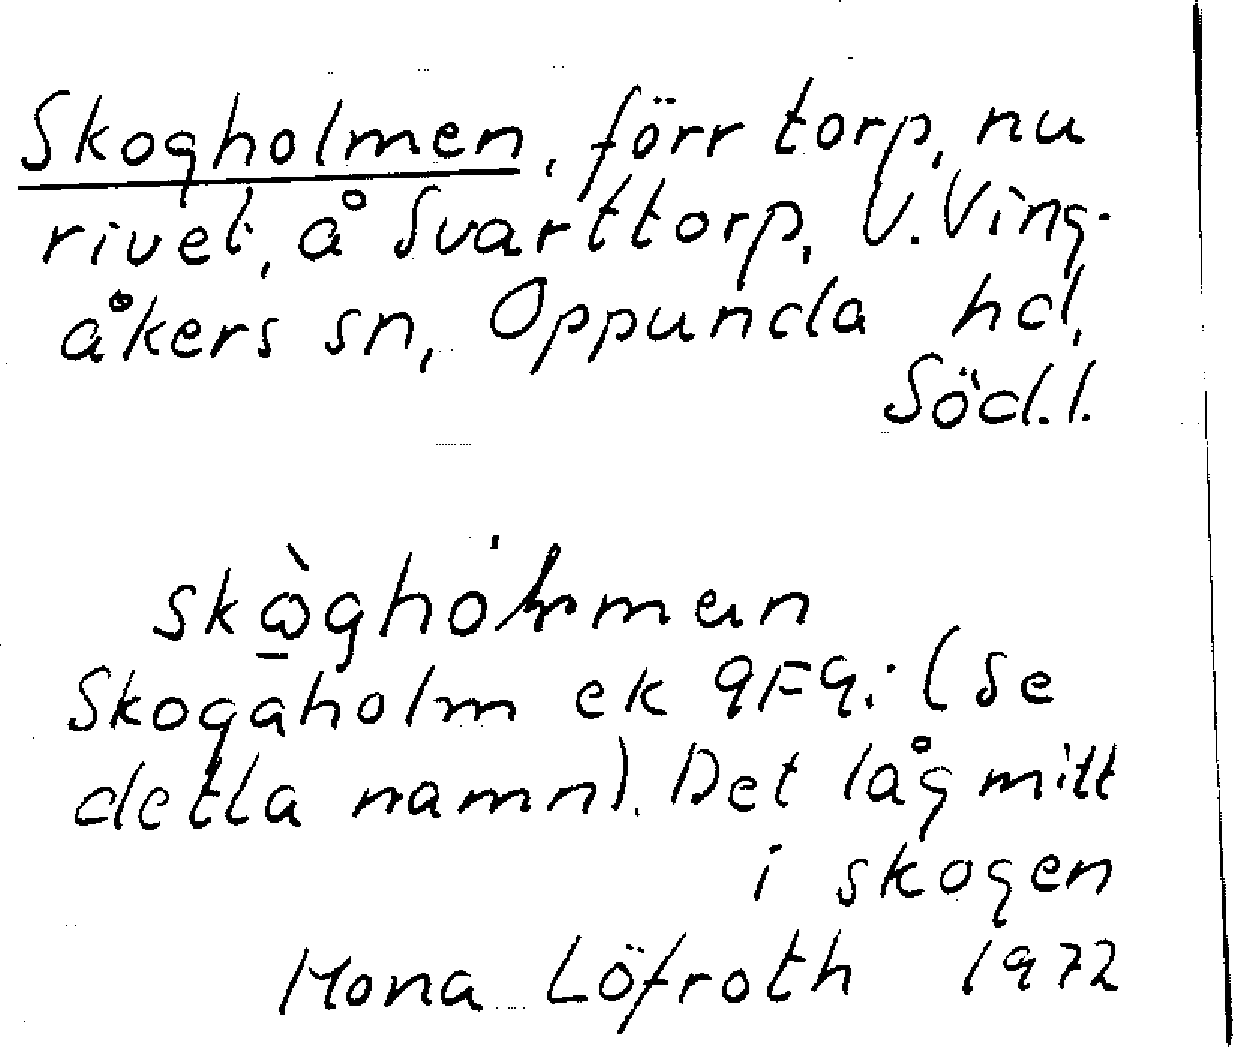 Skogholmen, förr torp, nu
rivet, å Svarttorp, V. Ving-
åkers sn, Oppunda hd,
Söd.l.
Skogaholm ek 9F9i (se
detta namn). Det låg mitt
i skogen
Mona Löfroth 1972